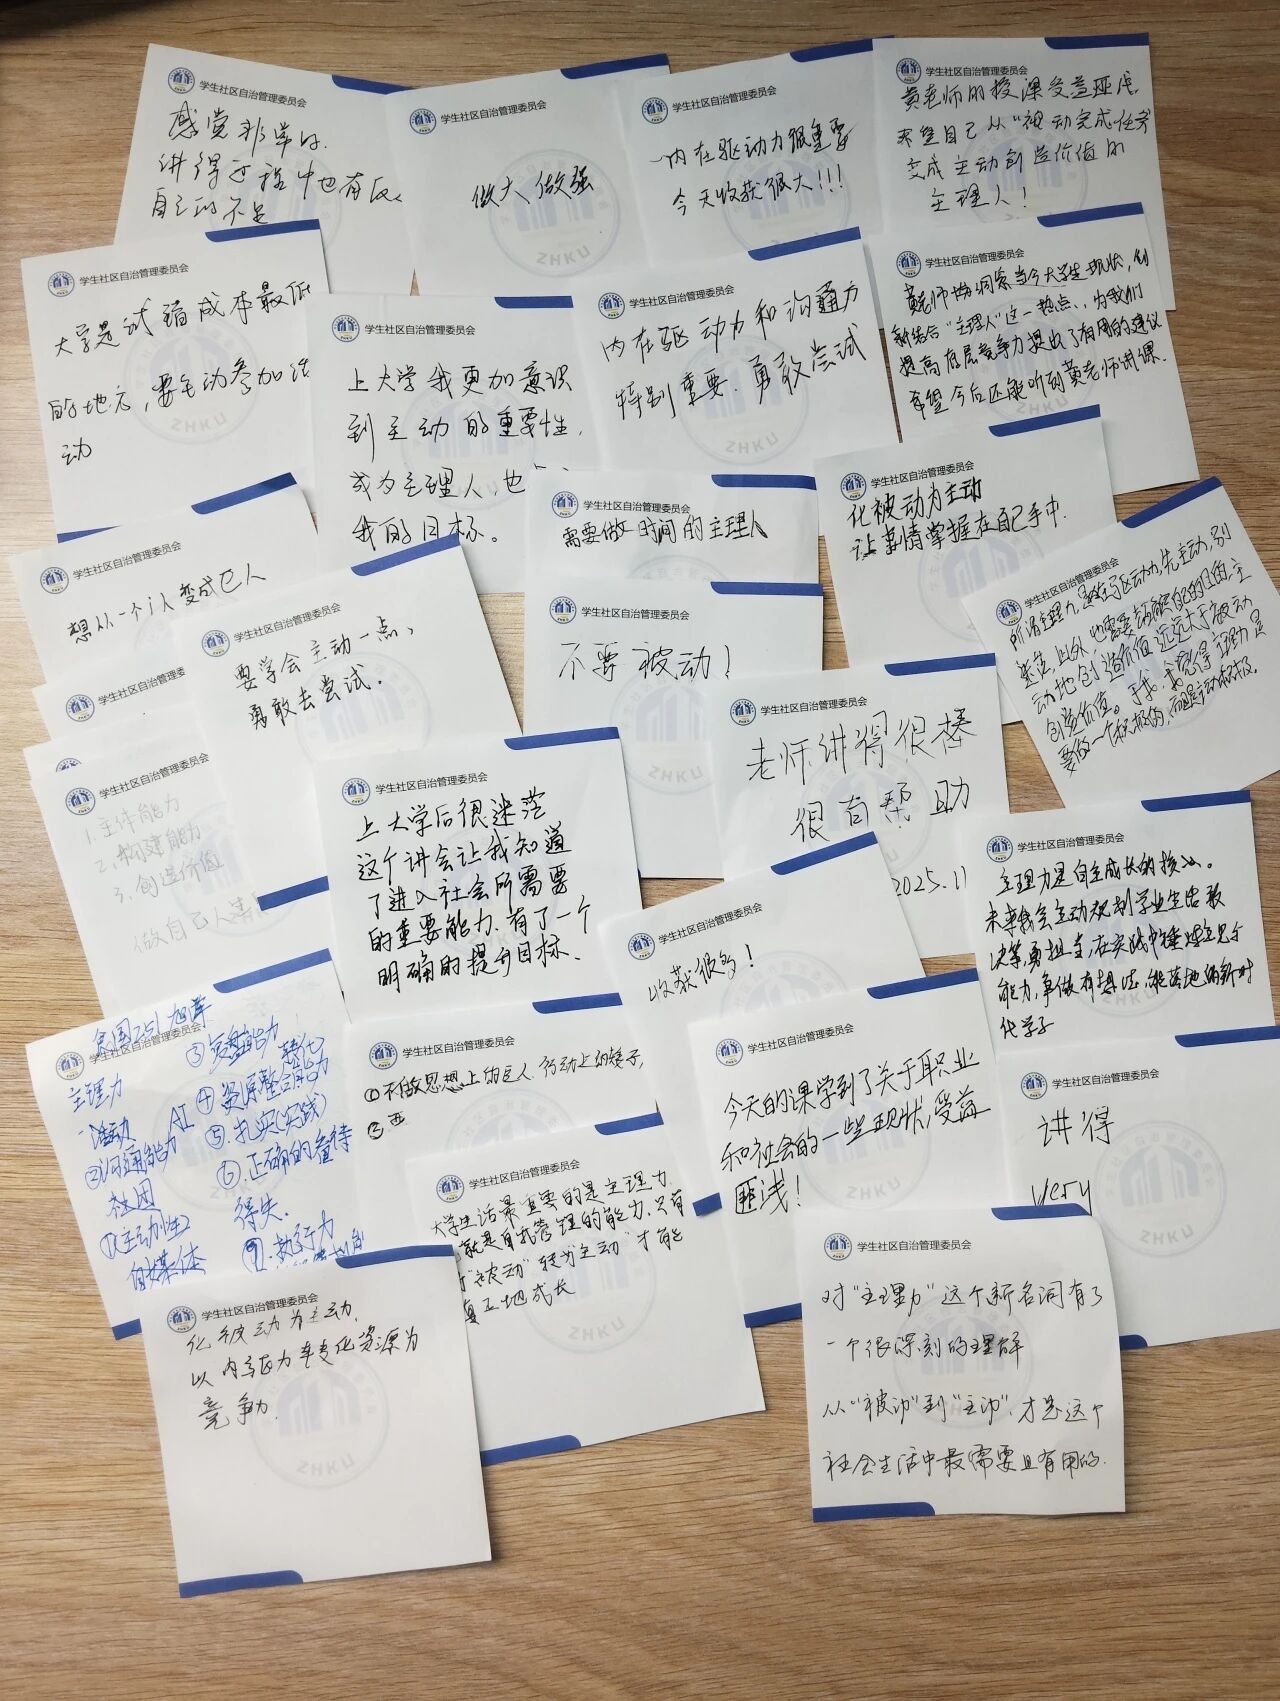 学生社区自治管理委员会
感觉非常好.
讲得过程中也有反
自己的不足
学生社区自治管理委员会
做大做强
ZHKU
学生社区自治管理委员会
内在驱动力很重要
今天收获很大!!!
学生社区自治管理委员会
黄老师的授课受益匪浅
希望自己从"被动完成任务
变成主动创造价值的
主理人!
学生社区自治管理委员会
大学是试错成本最低
的地方,要主动参加活
动
ZHKU
学生社区自治管理委员会
上大学我更加意识
到主动的重要性,
成为主理人,也
我的目标。
学生社区自治管理委员会
内在驱动力和沟通力
特别重要.勇敢尝试
ZHKU
学生社区自治管理委员会
黄老师洞察当今大学生现状,创
新结合"主理人"这一热点、为我们
提高底层竞争力提出了有用的建议
希望今后还能听到黄老师讲课.
学生社区自治管理委员会
需要做时间的主理人
学生社区自治管理委员会
化被动为主动
让事情掌握在自己手中.
学生社区自治管理委员会
想从一个i人变成e人
学生社区自治管理委员会
要学会主动一点,
勇敢去尝试.
学生社区自治管理委员会
不要被动!
ZHKU
学生社区自治管理委员会
所谓主理力,是在于区动力,先主动,别
动地创造价值远远大于被动
创造价值。于我,我觉得主理力是
要做一个积极的,
学生社区自治管理委员会
老师讲得很棒
很有帮助
2025.11
学生社区自治管理委员会
1.主体能力
2.构建能力
3.创造价值
做自己人生
学生社区自治管理委员会
上大学后很迷茫
这个讲会让我知道
了进入社会所需要
的重要能力.有了一个
明确的提升目标.
学生社区自治管理委员会
收获很多!
学生社区自治管理委员会
主理力是自主成长的核心。
未来我会主动规划学业生活敢
决策,勇担当,在实战中锤炼
能力,争做有想法,能落地的新时
化学子
学生社区自治管理委员会
食国251
主理力
活动
②沟通能力
社团
①(主动性)
自媒体
③复盘能力
AI
④资源整合能力
⑤.扎实(实践)
⑥.正确的看待
得失.
⑨.执行力
学生社区自治管理委员会
①不做思想上的巨人.行动上的矮子,
②西
学生社区自治管理委员会
今天的课学到了关于职业
和社会的一些现状,受益
匪浅!
学生社区自治管理委员会
讲得
very
学生社区自治管理委员会
大学生活最重要的是主理力.
就是自我管理的能力.只有
"被动"转为主动"才能
地成长
ZHKU
学生社区自治管理委员会
化被动为主动,
以内驱力车专化资源为
竞争力.
ZHKU
学生社区自治管理委员会
对"主理力"这个新名词有了
一个很深刻的理解
从"被动"到"主动",才是这个
社会生活中最需要且有用的.